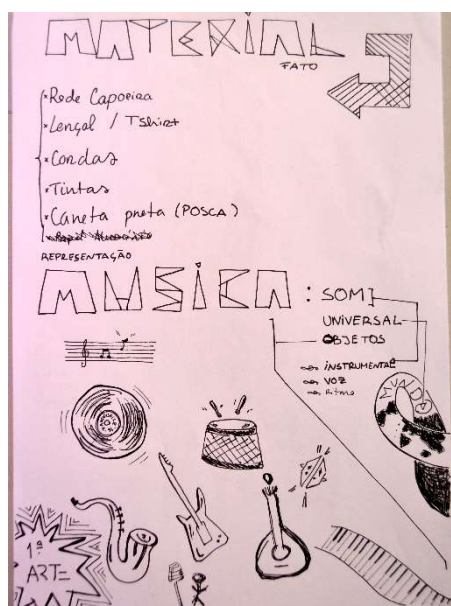 MATERIAL
FATO
Rede Capoeira
Lençol / TShirt
Cordas
Tintas
Caneta preta (POSCA)
REPRESENTAÇÃO
MUSICA : SOM
UNIVERSAL
OBJETOS
INSTRUMENTAL
VOZ
Ritmo
1ª
ARTE